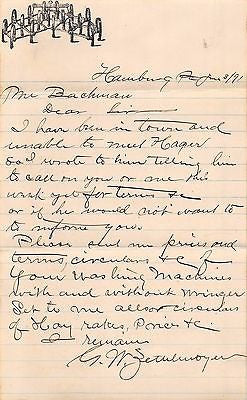 Hamburg Pa Jan 3/91
Mr Bachman
Dear Sir
I have been in town and
unable to meet Hager
so I wrote to him telling him
to call on you or me this
week yet for terms &c
or if he would not want to
to inform you.
Please send me prices and
terms, circulars &c of
Your Washing Machines
with and without Wringer
to me also circulars
of Hay rakes, &c
I remain
G. W. Zettlemoyer